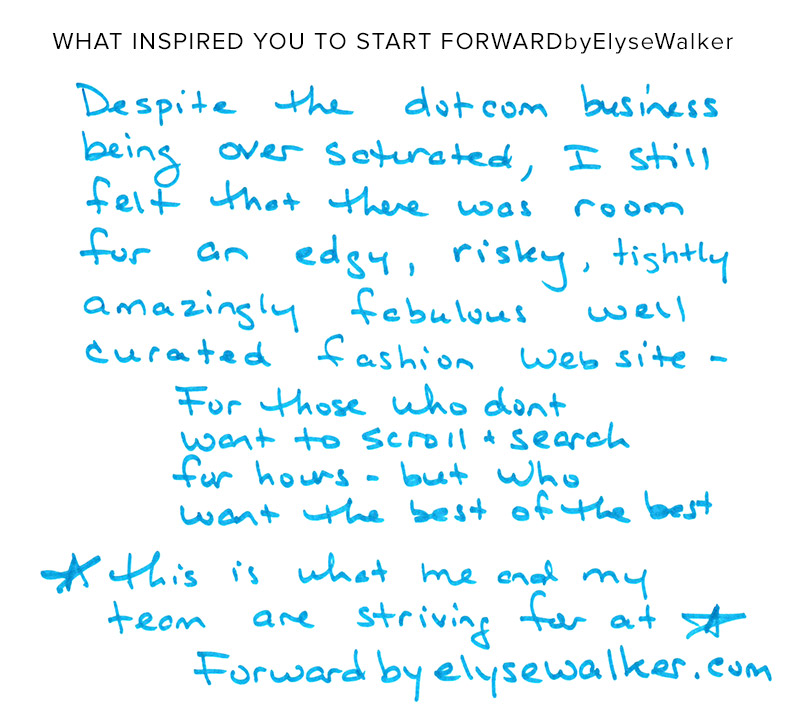 WHAT INSPIRED YOU TO START FORWARDbyElyseWalker
Despite the dotcom business
being over saturated, I still
felt that there was room
for an edgy, risky, tightly
amazingly fabulous well
curated fashion web site -
For those who dont
want to scroll + search
for hours - but who
want the best of the best
☆ this is what me and my
team are striving for at ☆
Forwardbyelysewalker.com